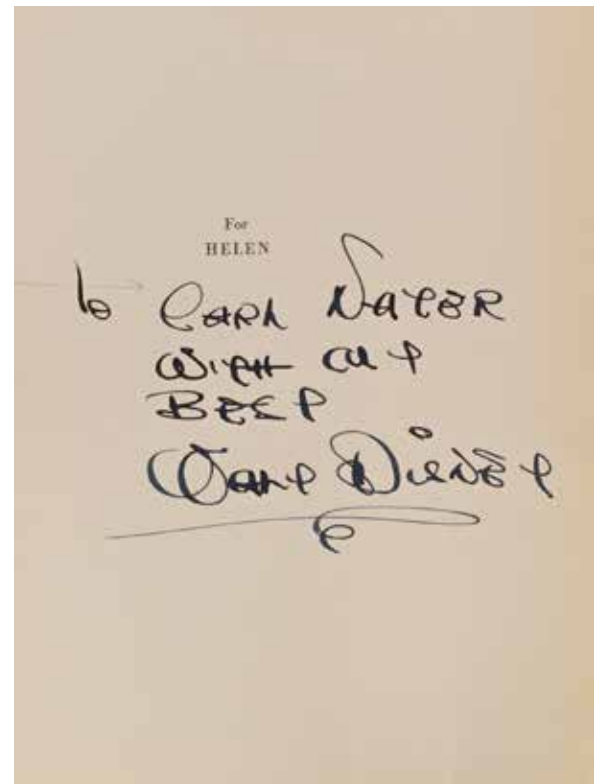 For
HELEN
To Carl Nater
With My
Best
Walt Disney